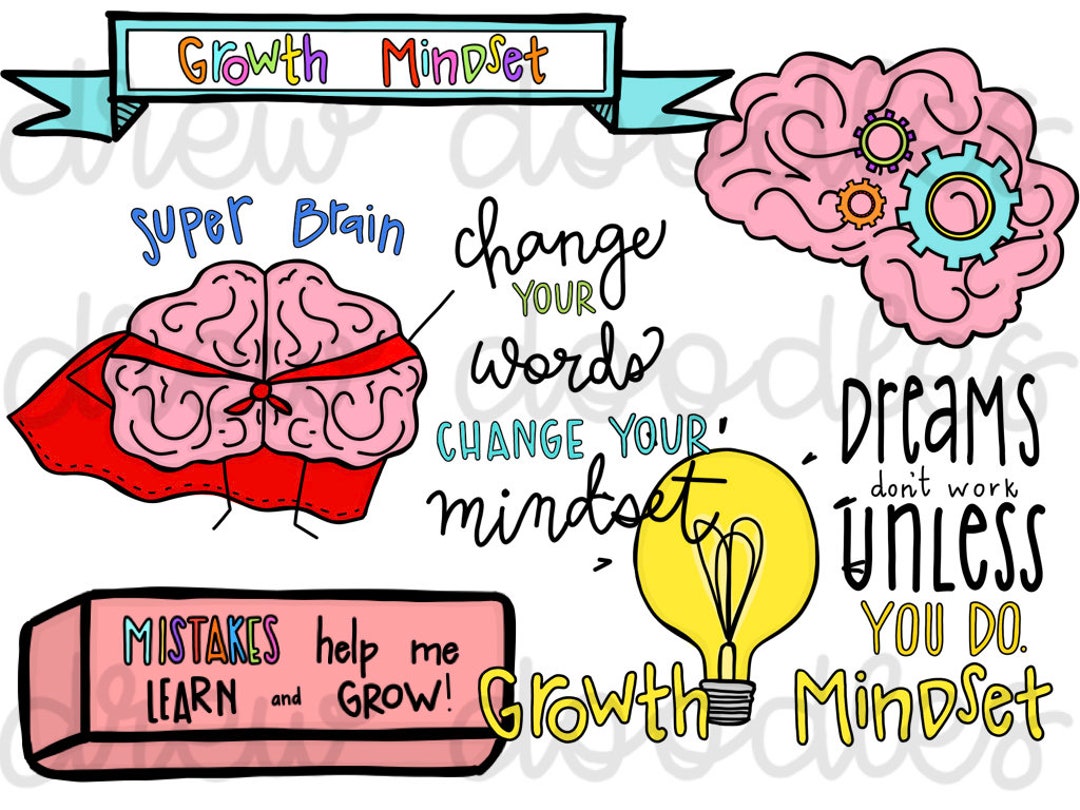 Growth Mindset
Super Brain
change
YOUR
words
CHANGE YOUR
mindset
DREAMS
don't work
UNLESS
YOU DO.
MISTAKES help me
LEARN and GROW!
Growth Mindset
drew doodles
drew doodles
drew doodles